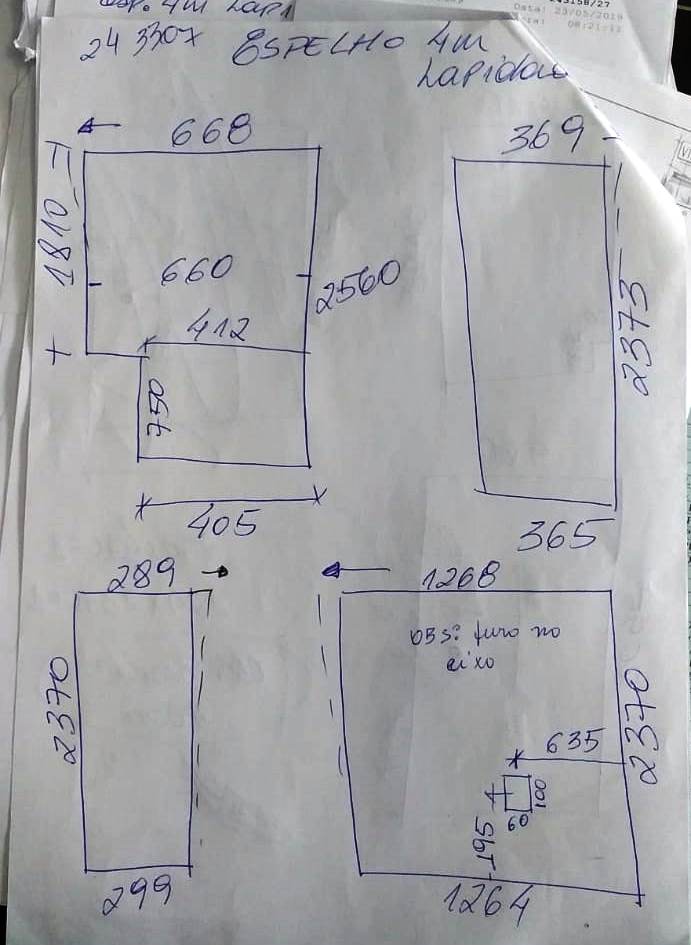 Esp. 4m Lapi
243158/27
Data: 23/05/2019
08:21:11
24 3307 ESPELHO 4m
Lapidado
668
369
1810
660
2560
412
2373
750
405
365
289
1268
OBS: furo no
eixo
2370
2370
635
100
60
195
299
1264